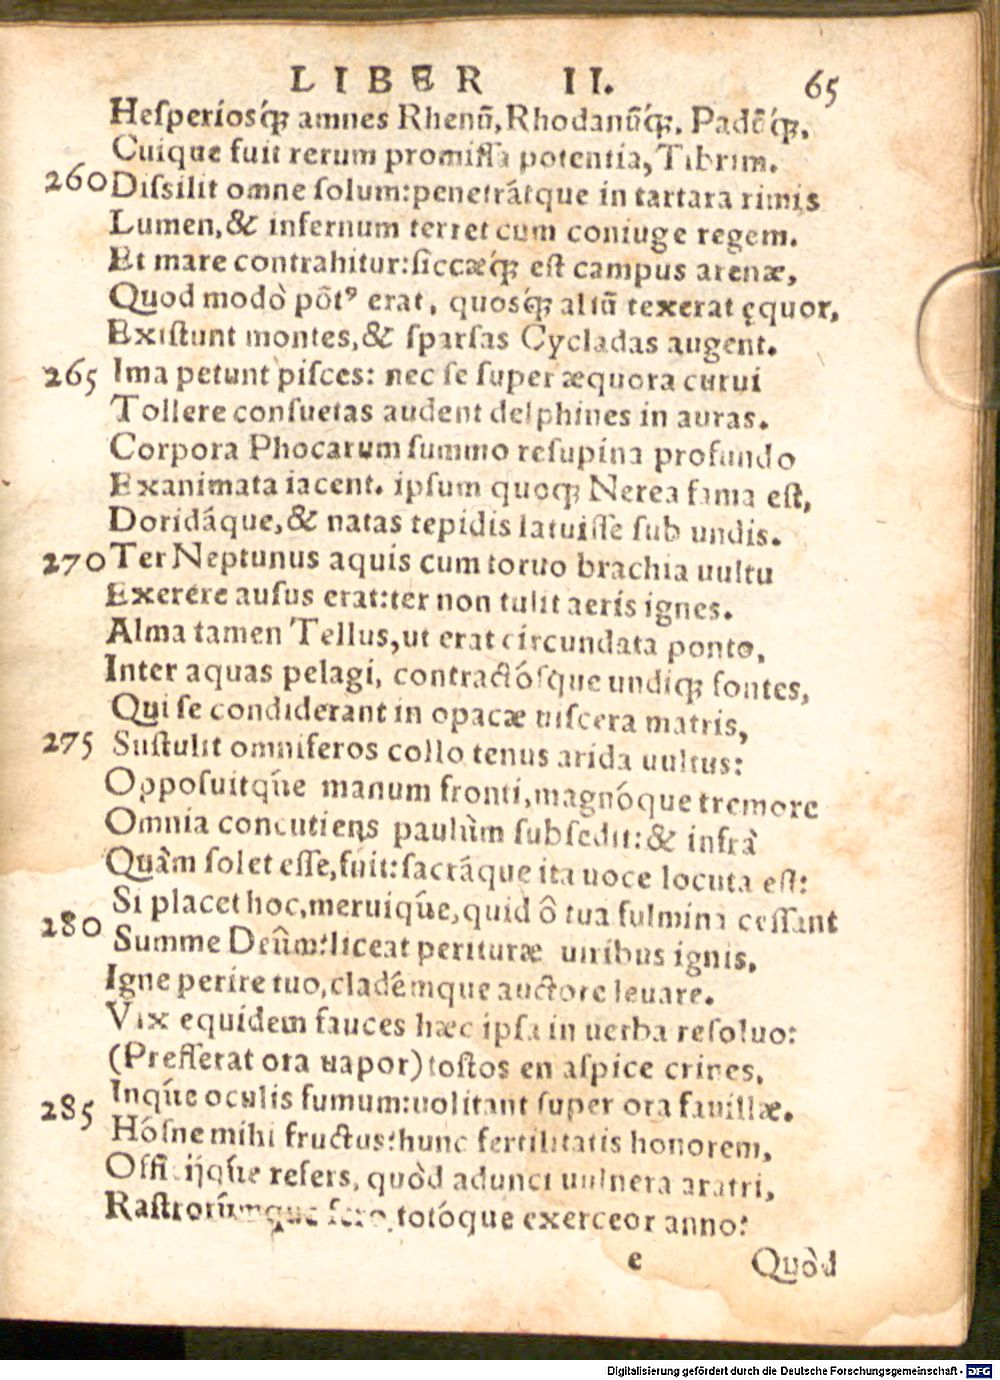 LIBER II. 65
Hesperiosq́ꝫ amnes Rhenũ, Rhodanũq́ꝫ, Padũq́ꝫ,
Cuique fuit rerum promissa potentia, Tibrim.
260 Dissilit omne solum: penetrátque in tartara rimis
Lumen, & infernum terret cum coniuge regem.
Et mare contrahitur: siccæq́ꝫ est campus arenæ,
Quod modò põtꝰ erat, quosq́ꝫ altũ texerat ęquor,
Existunt montes, & sparsas Cycladas augent.
265 Ima petunt pisces: nec se super æquora curui
Tollere consuetas audent delphines in auras.
Corpora Phocarum summo resupina profundo
Exanimata iacent. ipsum quoqꝫ Nerea fama est,
Doridáque, & natas tepidis latuisse sub undis.
270 Ter Neptunus aquis cum toruo brachia uultu
Exerere ausus erat: ter non tulit aeris ignes.
Alma tamen Tellus, ut erat circundata ponto,
Inter aquas pelagi, contractósque undiqꝫ fontes,
Qui se condiderant in opacæ uiscera matris,
275 Sustulit omniferos collo tenus arida uultus:
Opposuitq́ue manum fronti, magnóque tremore
Omnia concutiens paulùm subsedit: & infrà
Quàm solet esse, fuit: sacráque ita uoce locuta est:
Si placet hoc, meruiq́ue, quid ô tua fulmina cessant
280 Summe Deûm? liceat perituræ uiribus ignis,
Igne perire tuo, cladémque auctore leuare.
Vix equidem fauces hæc ipsa in uerba resoluo:
(Presserat ora uapor) tostos en aspice crines,
Inq́ue oculis fumum: uolitant super ora fauillæ.
285 Hósne mihi fructus? hunc fertilitatis honorem,
Officijq́ue refers, quòd adunci uulnera aratri,
Rastrorúmque fero, totóque exerceor anno?
e Quòd
Digitalisierung gefördert durch die Deutsche Forschungsgemeinschaft - DFG